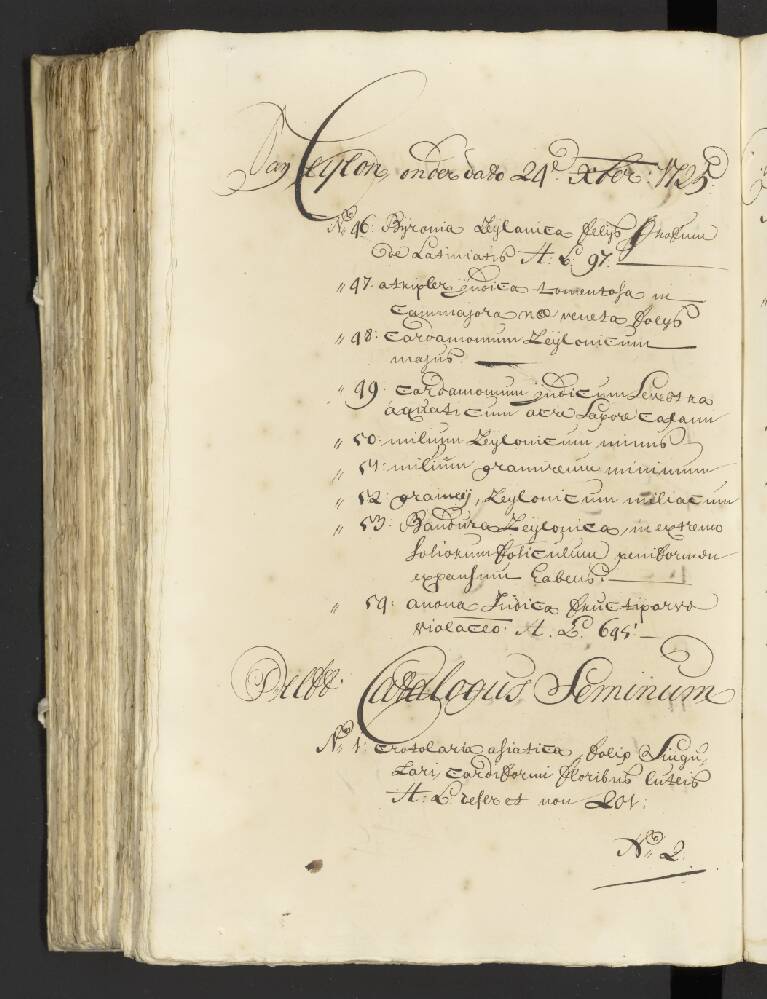 Van Ceijlon, onder dato 24.e Xber: 1725
No. 46. Byronia Zeylanica folijs
de Latiniatis H: L: 97.
" 47. atripler, Jndica tomentosa in
Cammajora næ veneta folys
" 48: Cardamomum Zeijlonicum
majus.
" 49: Cardamomum Jndicum
aquaticum acre Sapore
" 50: milium Zeylonicum minus
" 51: milium gramineum minimum
" 52: gramen, Zeylonicum miliacum
" 53: Bandura Zeylonica, in extremo
foliorum foliculum peniformem
expansum habens.
" 54: anona Jndica fructi parvo
violaceo. H. L: 695:
Catalogus Seminum
No. 1: Crotolaria asiatica, folio Singu„
lari, Cordifformi floribus luteis
H: L: referet non 201:
No. 2.